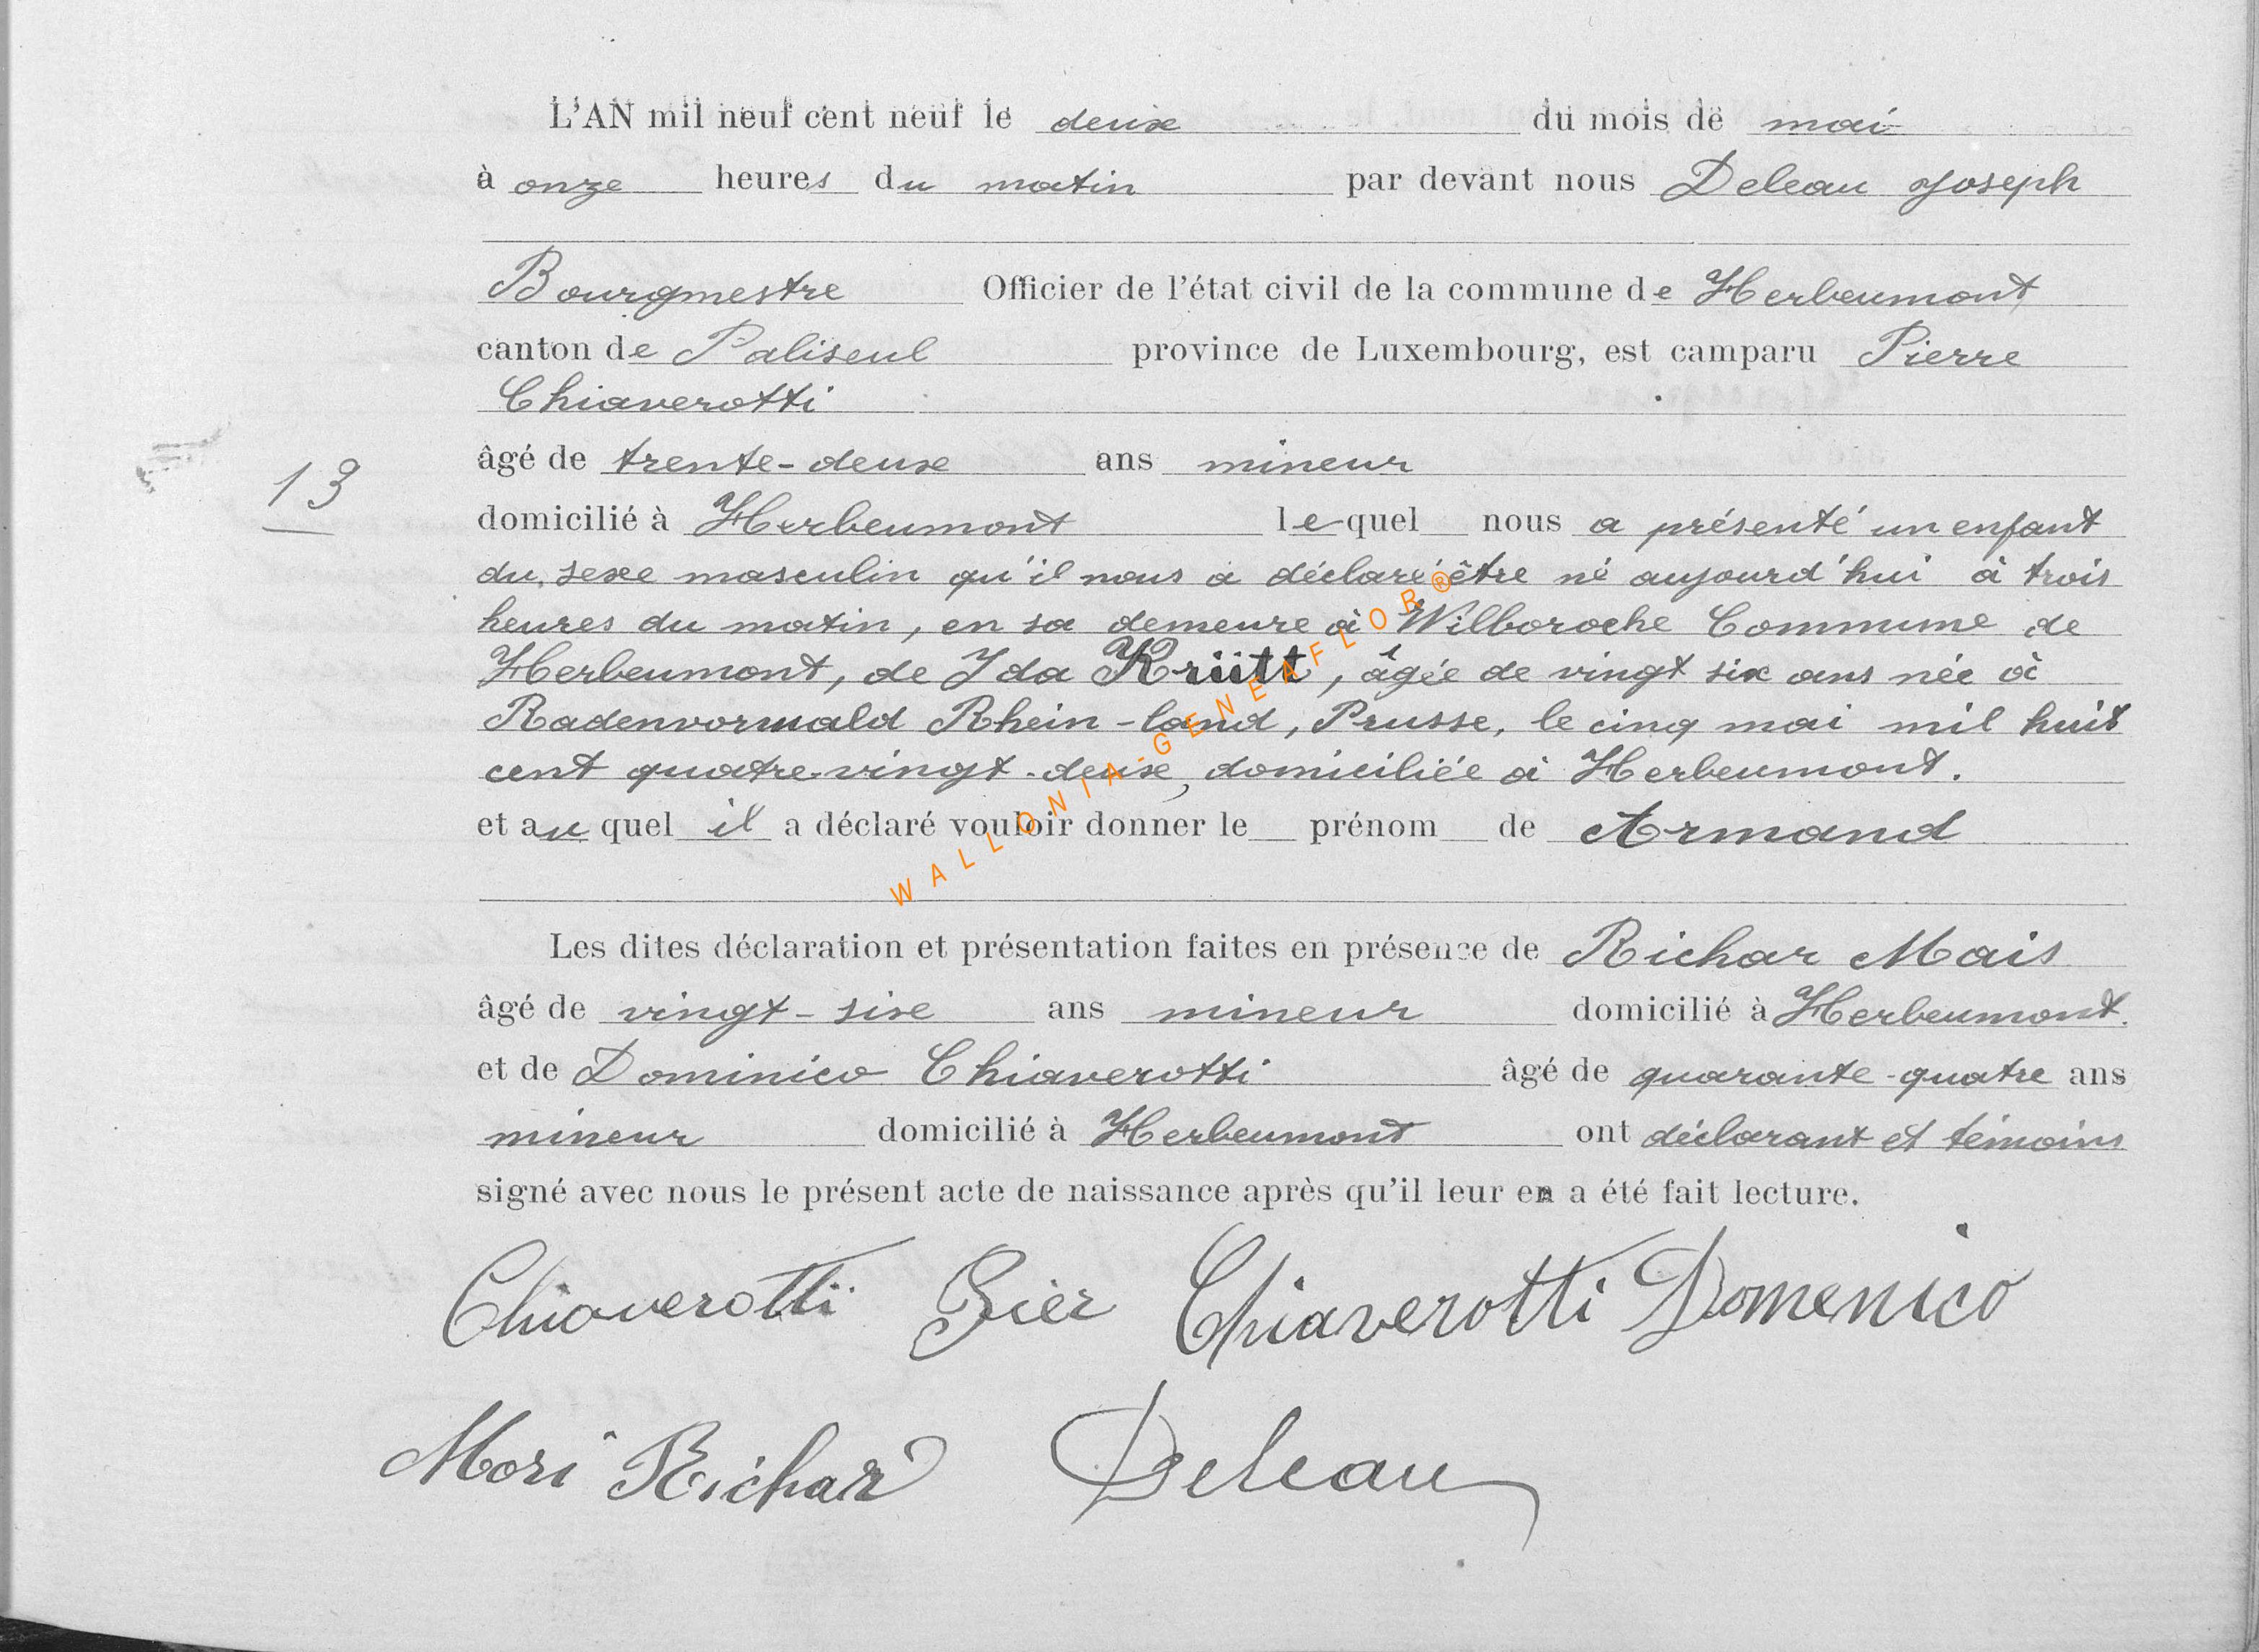 L'AN mil neuf cent neuf le deux du mois de mai
à onze heures du matin par devant nous Deleau Joseph
Bourgmestre Officier de l'état civil de la commune de Herbeumont
canton de Paliseul province de Luxembourg, est camparu Pierre
Chiaverotti
âgé de trente-deux ans mineur
13
domicilié à Herbeumont lequel nous a présenté un enfant
du sexe masculin qu'il nous a déclaré être né aujourd'hui à trois
heures du matin, en sa demeure à Wilboroche Commune de
Herbeumont, de Ida Krütt, âgée de vingt six ans née à
Radenvormald Rhein-land, Prusse, le cinq mai mil huit
cent quatre-vingt-deux, domiciliée à Herbeumont.
et auquel il a déclaré vouloir donner le prénom de Armand
WALLONIA-GENEAFLOR®
Les dites déclaration et présentation faites en présence de Richar Mais
âgé de vingt-six ans mineur domicilié à Herbeumont.
et de Dominico Chiaverotti âgé de quarante-quatre ans
mineur domicilié à Herbeumont ont déclarant et témoins
signé avec nous le présent acte de naissance après qu'il leur en a été fait lecture.
Chiaverotti Pier Chiaverotti Domenico
Mori Richar Deleau